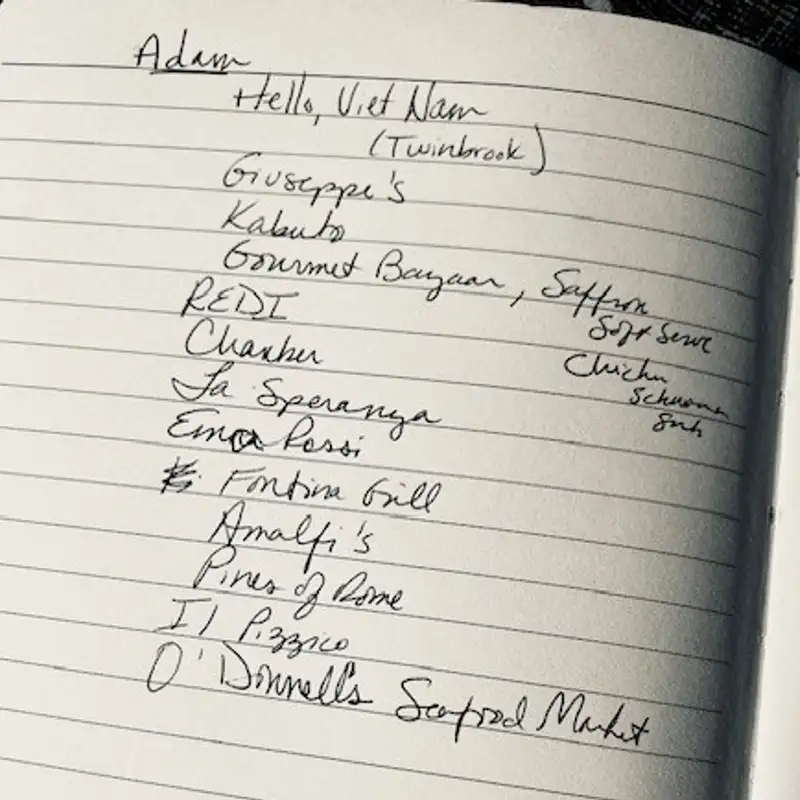 Adam
Hello, Viet Nam
(Twinbrook)
Giuseppe's
Kabuto
Gourmet Bazaar, Saffron
Soft Serve
REDI
Chicken
Charber
La Speranza
Emo Rossi
Fontina Grill
Amalfi's
Pines of Rome
Il Pizzico
O'Donnell's Seafood Market